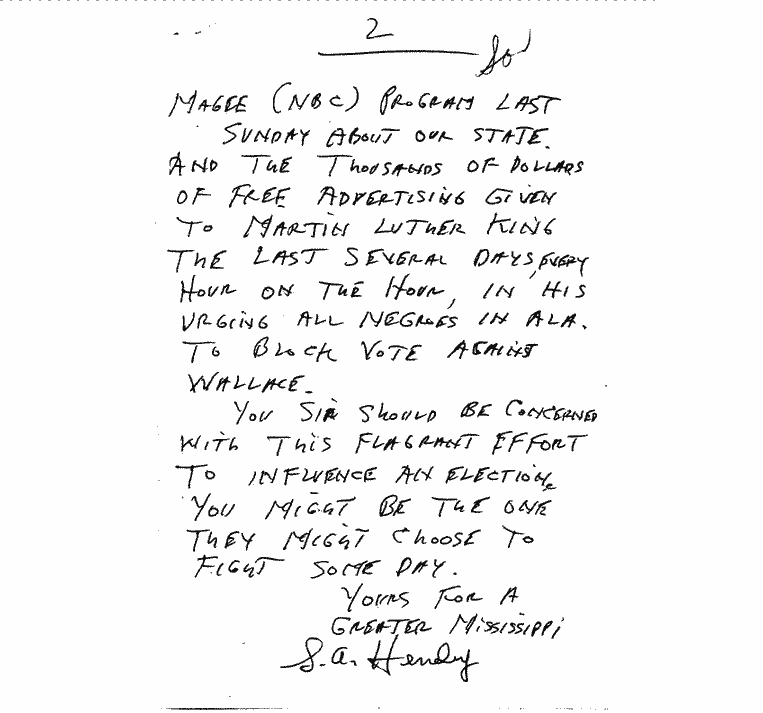 2
MAGEE (NBC) PROGRAM LAST
SUNDAY ABOUT OUR STATE.
AND THE THOUSANDS OF DOLLARS
OF FREE ADVERTISING GIVEN
TO MARTIN LUTHER KING
THE LAST SEVERAL DAYS, EVERY
HOUR ON THE HOUR, IN HIS
URGING ALL NEGROES IN ALA.
TO BLOCK VOTE AGAINST
WALLACE.
YOU SIR SHOULD BE CONCERNED
WITH THIS FLAGRANT EFFORT
TO INFLUENCE AN ELECTION.
YOU MIGHT BE THE ONE
THEY MIGHT CHOOSE TO
FIGHT SOME DAY.
YOURS FOR A
GREATER MISSISSIPPI
S.A. Hendy